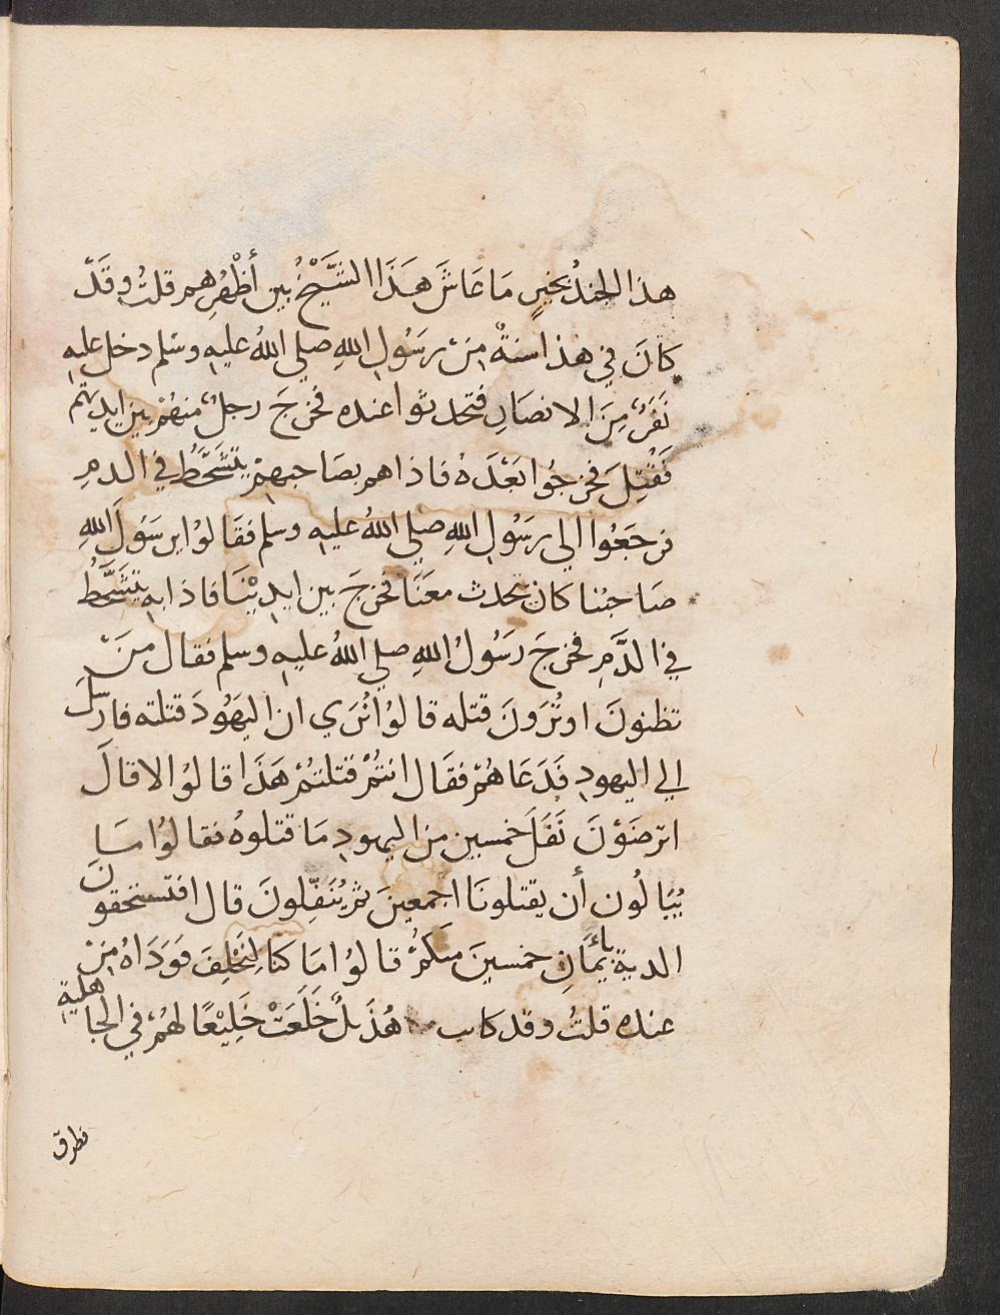 هذا الجندُ بخيرٍ مَا عَاشَ هَذَا الشَّيْخُ بين أَظْهُرِهم قلتُ وقَدْ
كانَ في هذا سنةٌ مِنْ رسَُولِ اللهِ صلي اللهُ عليهِ وسَلم دخل عليهِ
نَفَرٌ مِنَ الانصَارِ فتحدثوا عنده فخرجَ رجلٌ منهُمْ بين ايديهم
فَقُتِلَ فخرجُوا بَعْدَهُ فاذا هم بصَاحبهِمْ يَتَشَحَّطُ في الدمِ
فرجَعُوا الي رسَُولِ اللهِ صلي اللهُ عليهِ وسلم فقَالوُا يرسَُولَ اللهِ
صَاحبُنا كان يتحدث معَنَا فخرجَ بين ايدِيْنَا فاذا بهِ يَتَشَحَّطُ
في الدَّمِ فخرجَ رسَُولُ اللهِ صلي اللهُ عليهِ وسلم فقال مَنْ
تظنونَ اوتُرَونَ قتله قالوُا نُرَي ان اليهَُودَ قتلته فارسَلَ
الي اليهودِ فَدَعَاهُمْ فقَال انتُمْ قتلتُمْ هَذَا قالوُا لا قالَ
اترضَوْنَ نَفَلَ خمسين من اليهودِ مَا قتلوهُ فقالوُا مَا
يُبَالُون أن يقتلونَا اجمعينَ ثم يُنَفِّلونَ قال افتستحقونَ
الدية بأيْمَانِ خمسينَ منكمُْ قالوُا مَا كنا لِنَحْلِفَ فَوَدَاهُ مِنْ
عنده قلتُ وقد كانت هُذَيلٌ خَلَعَتْ خَلِيْعًا لهُمْ في الجاهليةِ
فطرق